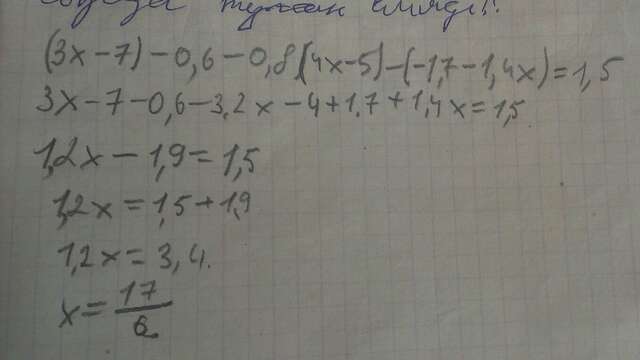 (3x-7)-0,6-0,8(4x-5)-(-1,7-1,4x)=1,5
3x-7-0,6-3,2x-4+1,7+1,4x=1,5
1,2x-1,9=1,5
1,2x=1,5+1,9
1,2x=3,4.
x=17/6